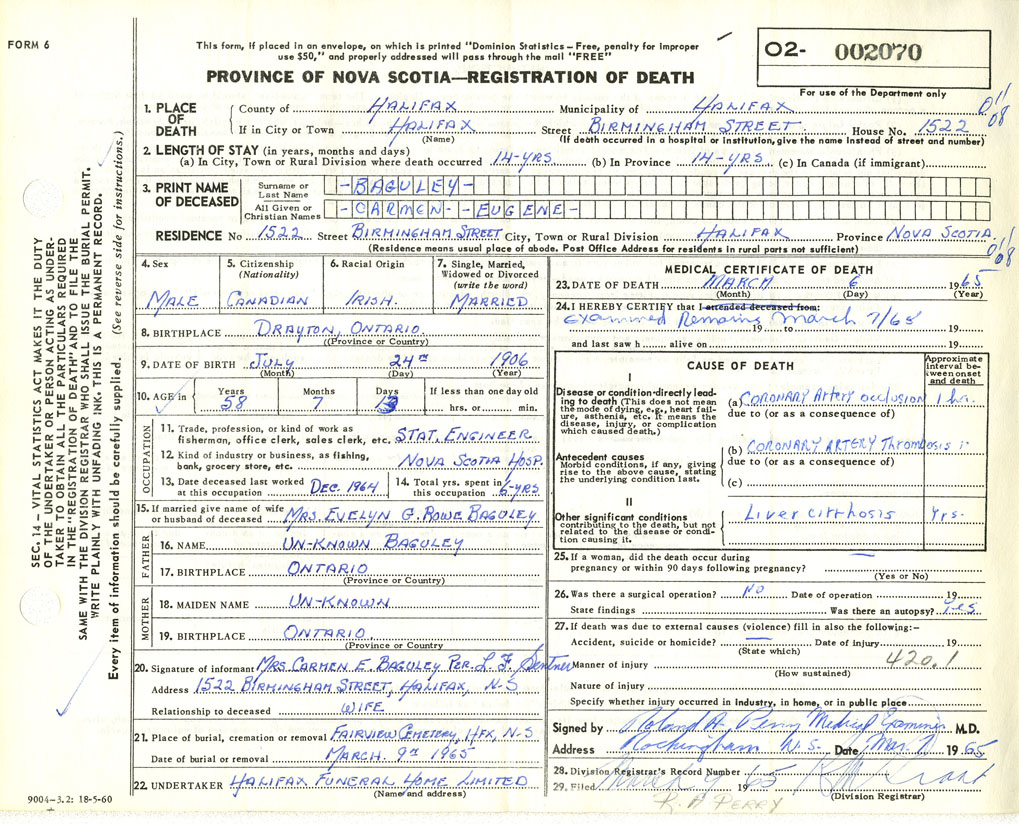 FORM 6
This form, if placed in an envelope, on which is printed "Dominion Statistics – Free, penalty for improper
use $50," and properly addressed will pass through the mail "FREE"
PROVINCE OF NOVA SCOTIA—REGISTRATION OF DEATH
O2- 002070
For use of the Department only
1. PLACE OF DEATH
County of HALIFAX Municipality of HALIFAX
If in City or Town HALIFAX Street BIRMINGHAM STREET House No. 1522
(Name) (If death occurred in a hospital or institution, give the name instead of street and number)
011
08
2. LENGTH OF STAY (in years, months and days)
(a) In City, Town or Rural Division where death occurred 14-YRS (b) In Province 14-YRS. (c) In Canada (if immigrant)
3. PRINT NAME OF DECEASED
Surname or Last Name -BAGULEY-
All Given or Christian Names -CARMEN--EUGENE-
RESIDENCE No 1522 Street BIRMINGHAM STREET City, Town or Rural Division HALIFAX Province NOVA SCOTIA
(Residence means usual place of abode. Post Office Address for residents in rural parts not sufficient)
011
08
4. Sex MALE
5. Citizenship (Nationality) CANADIAN
6. Racial Origin IRISH.
7. Single, Married, Widowed or Divorced (write the word) MARRIED
8. BIRTHPLACE DRAYTON, ONTARIO.
((Province or Country)
9. DATE OF BIRTH JULY 24TH 1906
(Month) (Day) (Year)
10. AGE in Years 58 Months 7 Days 13 If less than one day old
hrs. or min.
OCCUPATION
11. Trade, profession, or kind of work as
fisherman, office clerk, sales clerk, etc. STAT. ENGINEER
12. Kind of industry or business, as fishing,
bank, grocery store, etc. NOVA SCOTIA HOSP.
13. Date deceased last worked
at this occupation DEC. 1964
14. Total yrs. spent in
this occupation 6-YRS.
15. If married give name of wife
or husband of deceased MRS. EVELYN G. ROWE BAGULEY
FATHER
16. NAME UN-KNOWN BAGULEY
17. BIRTHPLACE ONTARIO
(Province or Country)
MOTHER
18. MAIDEN NAME UN-KNOWN
19. BIRTHPLACE ONTARIO.
(Province or Country
20. Signature of informant MRS CARMEN E. BAGULEY PER L F. Sentner
Address 1522 BIRMINGHAM STREET, HALIFAX, N-S
Relationship to deceased WIFE
21. Place of burial, cremation or removal FAIRVIEW CEMETERY, HFX, N-S
Date of burial or removal MARCH. 9TH 1965
22. UNDERTAKER HALIFAX FUNERAL HOME LIMITED
(Name and address)
MEDICAL CERTIFICATE OF DEATH
23. DATE OF DEATH MARCH 6 1965.
(Month) (Day) (Year)
24. I HEREBY CERTIFY that I attended deceased from:
Examined Remains March 7/65
19 to 19
and last saw h alive on 19
CAUSE OF DEATH
Approximate interval between onset and death
I
Disease or condition directly leading to death (This does not mean the mode of dying, e.g., heart failure, asthenia, etc. It means the disease, injury, or complication which caused death.)
(a) CORONARY ARTERY OCCLUSION 1 hr.
due to (or as a consequence of)
Antecedent causes
Morbid conditions, if any, giving rise to the above cause, stating the underlying condition last.
(b) CORONARY ARTERY Thrombosis
due to (or as a consequence of)
(c)
II
Other significant conditions
contributing to the death, but not related to the disease or condition causing it.
Liver cirrhosis Yrs.
25. If a woman, did the death occur during
pregnancy or within 90 days following pregnancy? —
(Yes or No)
26. Was there a surgical operation? NO Date of operation 19
State findings Was there an autopsy? Yes
27. If death was due to external causes (violence) fill in also the following:–
Accident, suicide or homicide? — Date of injury 19
(State which)
420.1
Manner of injury
(How sustained)
Nature of injury
Specify whether injury occurred in industry, in home, or in public place
Signed by Roland A. Perry Medical Examiner M.D.
Address Rockingham N.S. Date Mar. 7 1965
28. Division Registrar's Record Number
29. Filed 1965
(Division Registrar)
R. A PERRY
SEC. 14 – VITAL STATISTICS ACT MAKES IT THE DUTY
OF THE UNDERTAKER OR PERSON ACTING AS UNDER-
TAKER TO OBTAIN ALL THE PARTICULARS REQUIRED
IN THE "REGISTRATION OF DEATH" AND TO FILE THE
SAME WITH THE DIVISION REGISTRAR WHO SHALL ISSUE THE BURIAL PERMIT.
WRITE PLAINLY WITH UNFADING INK. THIS IS A PERMANENT RECORD.
Every item of information should be carefully supplied. (See reverse side for instructions.)
9004-3.2: 18-5-60